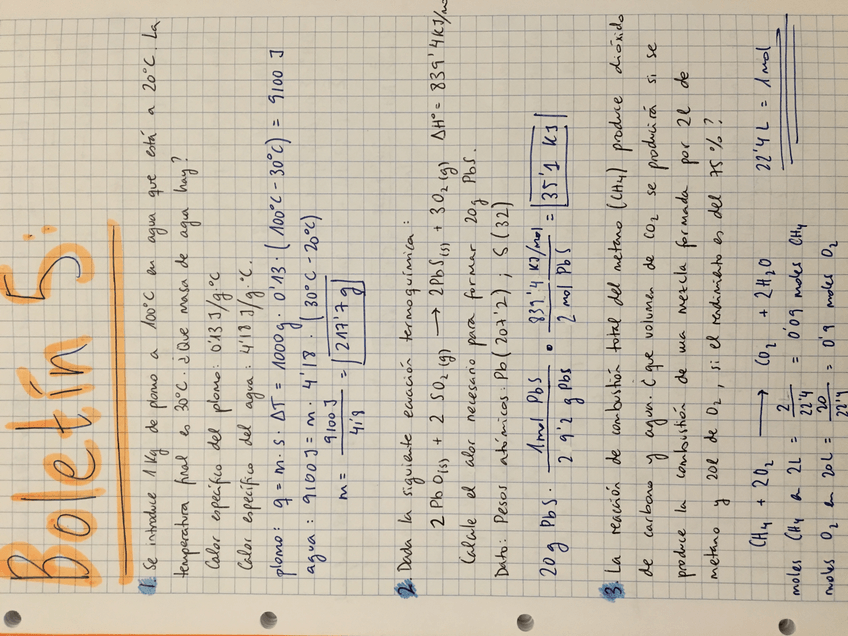 Boletín 5:
1. Se introduce 1 Kg de plomo a 100°C en agua que está a 20°C. La
temperatura final es 30°C. ¿Que masa de agua hay?
Calor específico del plomo: 0'13 J/g·°C
Calor específico del agua: 4'18 J/g·°C
plomo: q = m·s·ΔT = 1000g · 0'13 · (100°C - 30°C) = 9100 J
agua: 9100 J = m · 4'18 · (30°C - 20°C)
m = 9100 J / 41'8 = 217'7 g
2. Dada la siguiente ecuación termoquímica:
2 PbO(s) + 2 SO2(g) → 2PbS(s) + 3O2(g) ΔH° = 839'4 KJ/mo
Calcule el calor necesario para formar 20g PbS.
Dato: Pesos atómicos: Pb(207'2); S(32)
20 g PbS · 1 mol PbS / 239'2 g PbS · 839'4 KJ/mol / 2 mol PbS = 35'1 KJ
3. La reacción de combustión total del metano (CH4) produce dióxido
de carbono y agua. ¿que volumen de CO2 se producirá si se
produce la combustión de una mezcla formada por 2l de
metano y 20l de O2, si el rendimiento es del 75%?
CH4 + 2O2 → CO2 + 2H2O 22'4 L = 1 mol
moles CH4 en 2L = 2 / 22'4 = 0'09 moles CH4
moles O2 en 20L = 20 / 22'4 = 0'9 moles O2